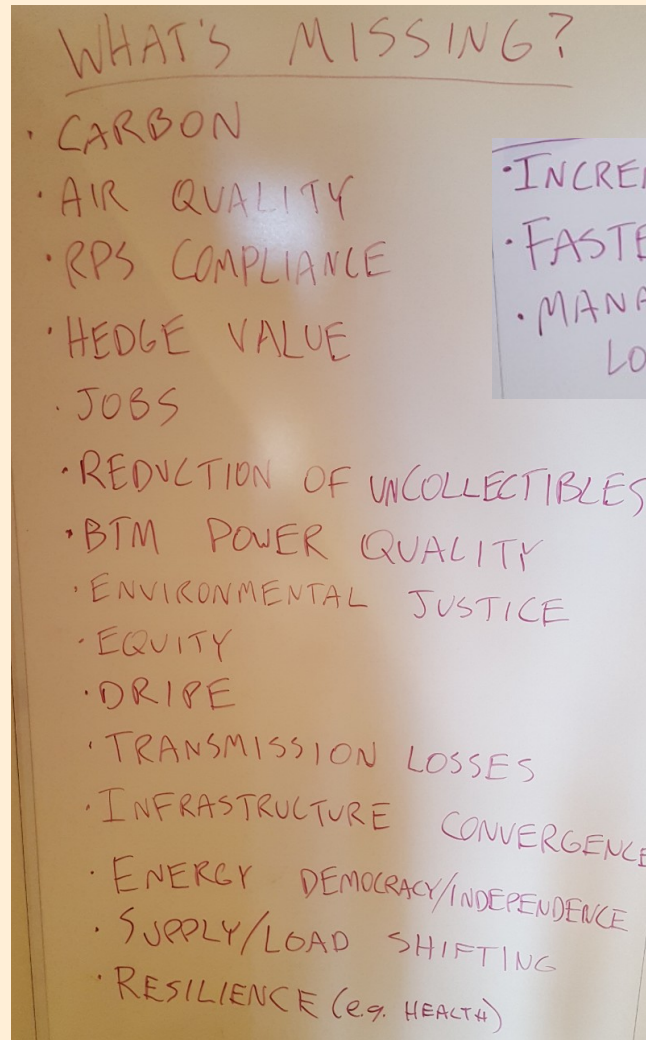 WHAT'S MISSING?
· CARBON
· AIR QUALITY
· RPS COMPLIANCE
· HEDGE VALUE
· JOBS
· REDUCTION OF UNCOLLECTIBLES
· BTM POWER QUALITY
· ENVIRONMENTAL JUSTICE
· EQUITY
· DRIPE
· TRANSMISSION LOSSES
· INFRASTRUCTURE CONVERGENCE
· ENERGY DEMOCRACY/INDEPENDENCE
· SUPPLY/LOAD SHIFTING
· RESILIENCE (e.g. HEALTH)
· INCRE
· FASTE
· MANA
LO